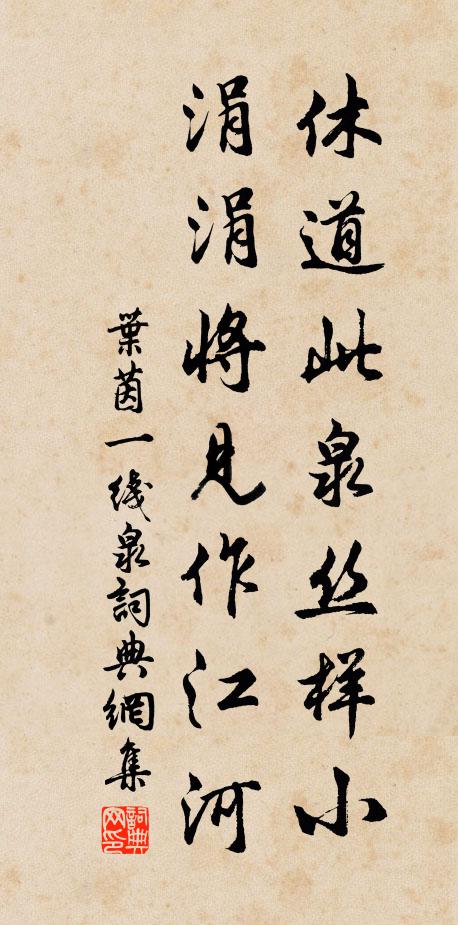 休道此泉丝样小
涓涓将见作江河
葉茵一线泉詞典網集
詞典网印